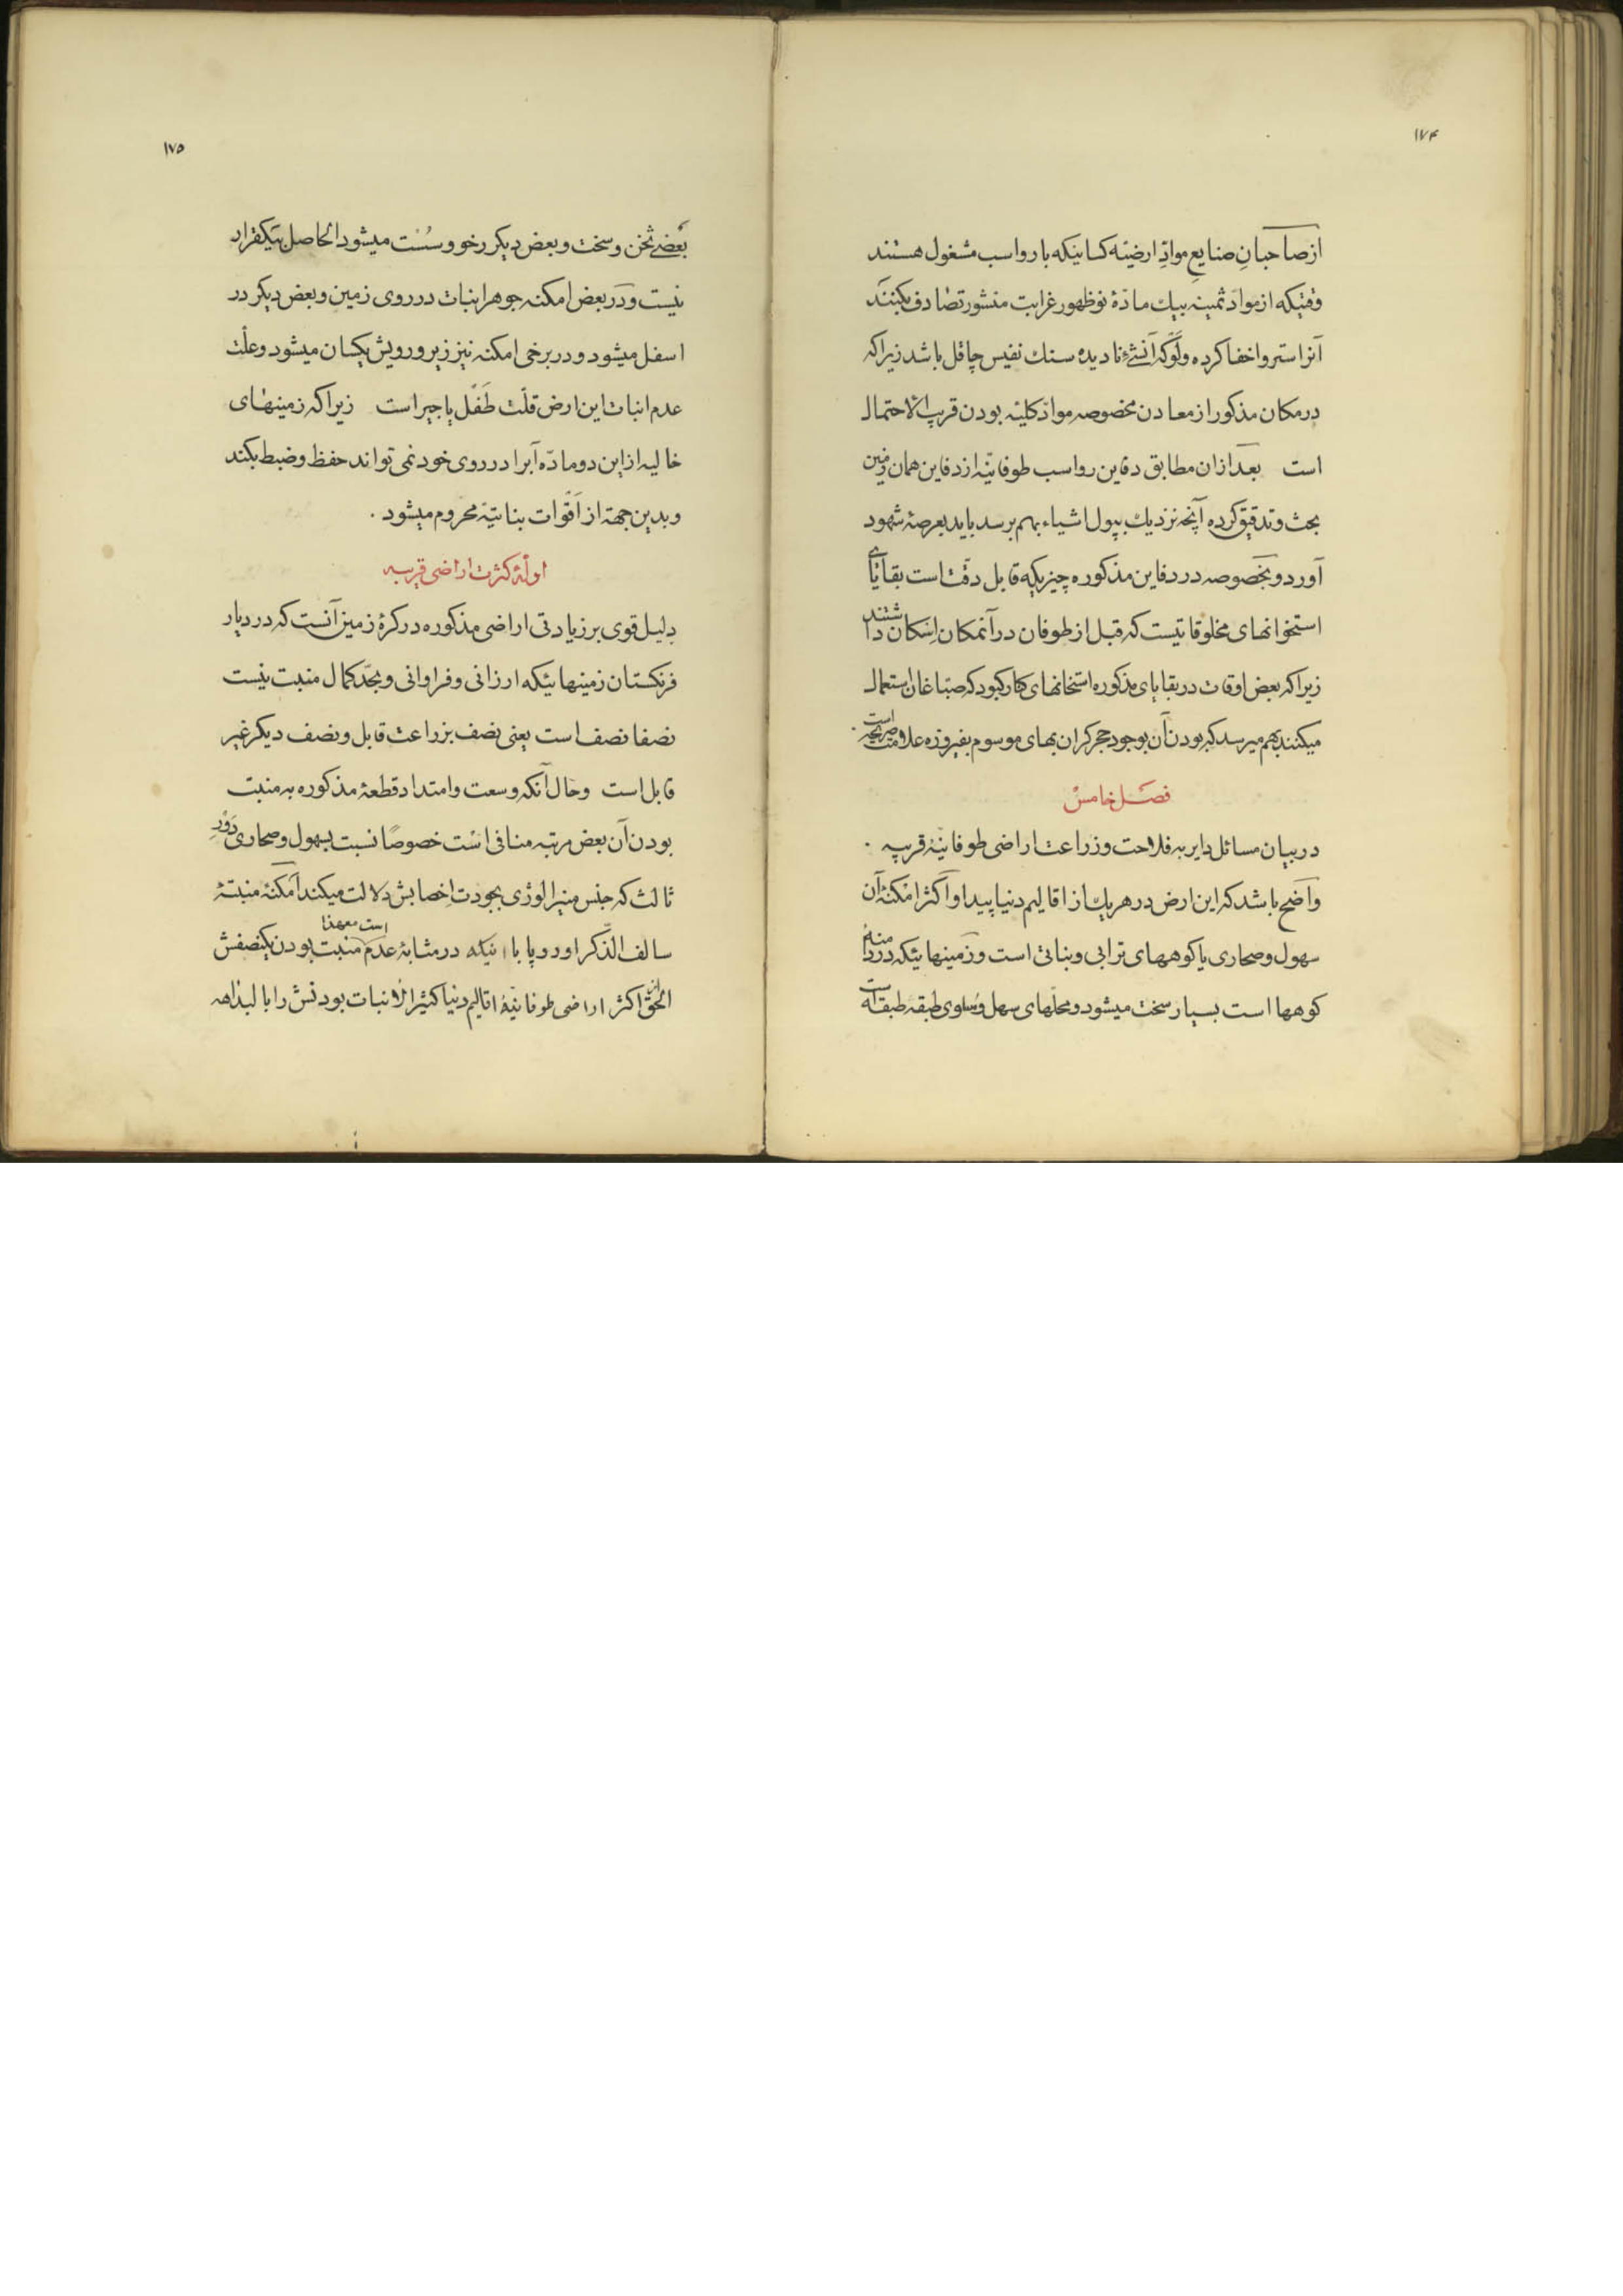 ۱۷۴
از صاحبانِ صنایعِ موادِّ ارضیّه کسانیکه با رواسب مشغول هستند
وقتیکه از موادّ ثمینه بیك مادّهٔ نوظهور غرابت منشور تصادف بکنند
آنرا ستر و اخفا کرده ولَوْکه آنشیء نادیده سنك نفیس چاقل باشد زیراکه
در مکان مذکور از معادن مخصوصه موادّ کلیّه بودن قریب الاحتمال
است بعد ازان مطابق دفاین رواسب طوفانیّه از دفاین همان زمین
بحث و تدقیق کرده آنچه نزدیك بپول اشیاء بهم برسد باید بعرصهٔ شهود
آورد و بخصوصه در دفاین مذکوره چیزیکه قابل دقّت است بقایای
استخوانهای مخلوقاتیست که قبل از طوفان در آنمکان اِسکان داشتند
زیراکه بعض اوقات در بقایای مذکوره استخانهای کبود که صبّاغان استعمال
میکنند بهم میرسد کبود بودن آن بوجود حجر کران بهای موسوم بفیروزه علامت صریحه است .
فصل خامسْ
در بیان مسائل دایر به فلاحت و زراعت اراضی طوفانیّهٔ قریبه .
واضح باشد که این ارض در هر یك از اقالیم دنیا پیدا و اکثر امکنهٔ آن
سهول و صحاری یا کوههای ترابی و نباتی است و زمینهائیکه در دامنهٔ
کوهها است بسیار سخت میشود و محلّهای سهل و مُسلوی طبقه طبقه است
۱۷۵
بعضے ثخن و سخت و بعض دیکر رخو و سُسْت میشود الحاصل بیکقرار
نیست و در بعض امکنه جوهر انبات در روی زمین و بعض دیکر در
اسفل میشود و در برخی امکنه نیز زیر و رویش یکسان میشود و علّت
عدم انبات این ارض قلّت طَفْل یا جیر است زیراکه زمینهای
خالیه از این دو مادّه آبرا در روی خود نمی تواند حفظ و ضبط بکند
و بدین جهة از اَقْوات بناتیّه محروم میشود .
ادلّهٔ کثرت اراضی قریبه
دلیل قوی بر زیادتی اراضی مذکوره در کرهٔ زمین آنست که در دیار
فرنکستان زمینهائیکه ارزانی و فراوانی و بحدّ کمال منبت نیست
نصفا نصف است یعنی نصف بزراعت قابل و نصف دیکر غیر
قابل است و حال آنکه وسعت و امتداد قطعهٔ مذکوره به منبت
بودن آن بعض مرتبه منافی است خصوصًا نسبت بسهول و صحاری دَوْرِ
ثالث که جنس مینرالوژی بجودت اخصابش دلالت میکند اَمکنهٔ منبتهٔ
سالف الذّکر اوروپا با اینکه در مثابهٔ عدم منبت بودن یکنصفش است معهذا
الحقّ اکثر اراضی طوفانیّهٔ اقالیم دنیا کثیر الانبات بودنش را بالبداهه